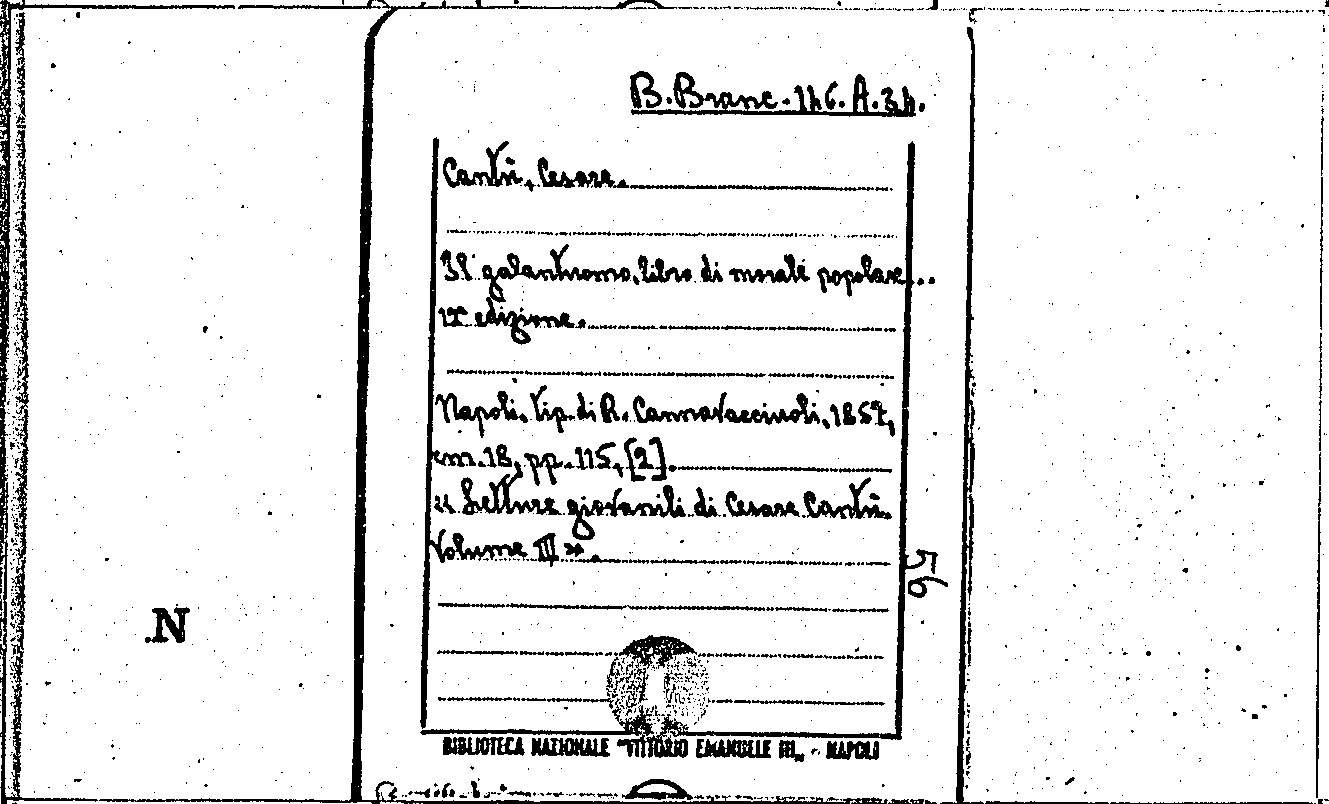 B. Branc. 146. A. 34.
Cantù, Cesare.
Il galantuomo, libro di morale popolare...
edizione.
Napoli, tip. di R. Cannavacciuoli, 1857,
in 18, pp. 115, [2].
« Letture giovanili di Cesare Cantù.
Volume III ».
56
N
BIBLIOTECA NAZIONALE "VITTORIO EMANUELE III„ - NAPOLI